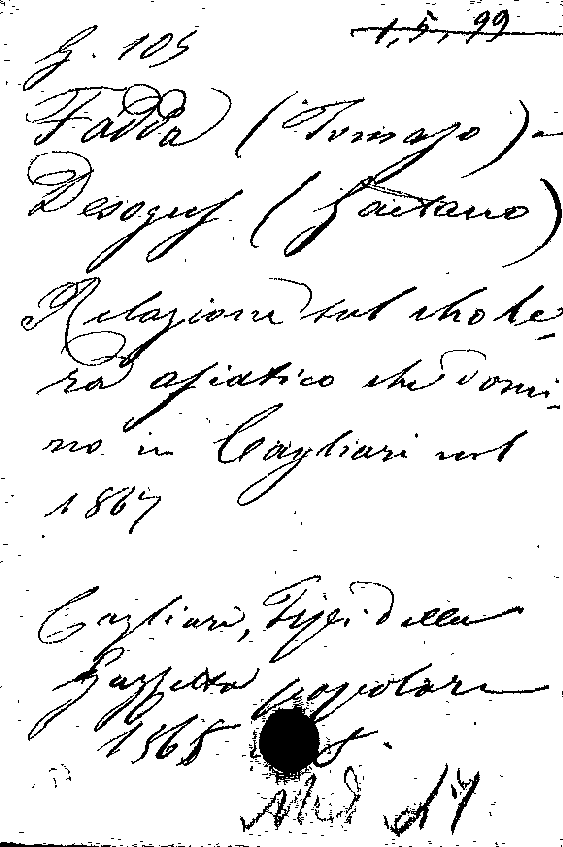 G. 105
1, 5, 99
Fadda (Tomaso) -
Desogus (Gaetano)
Relazione sul chole-
ra asiatico che domi-
nò in Cagliari nel
1867
Cagliari, Tip. della
Gazzetta popolare
1868 8.
Med